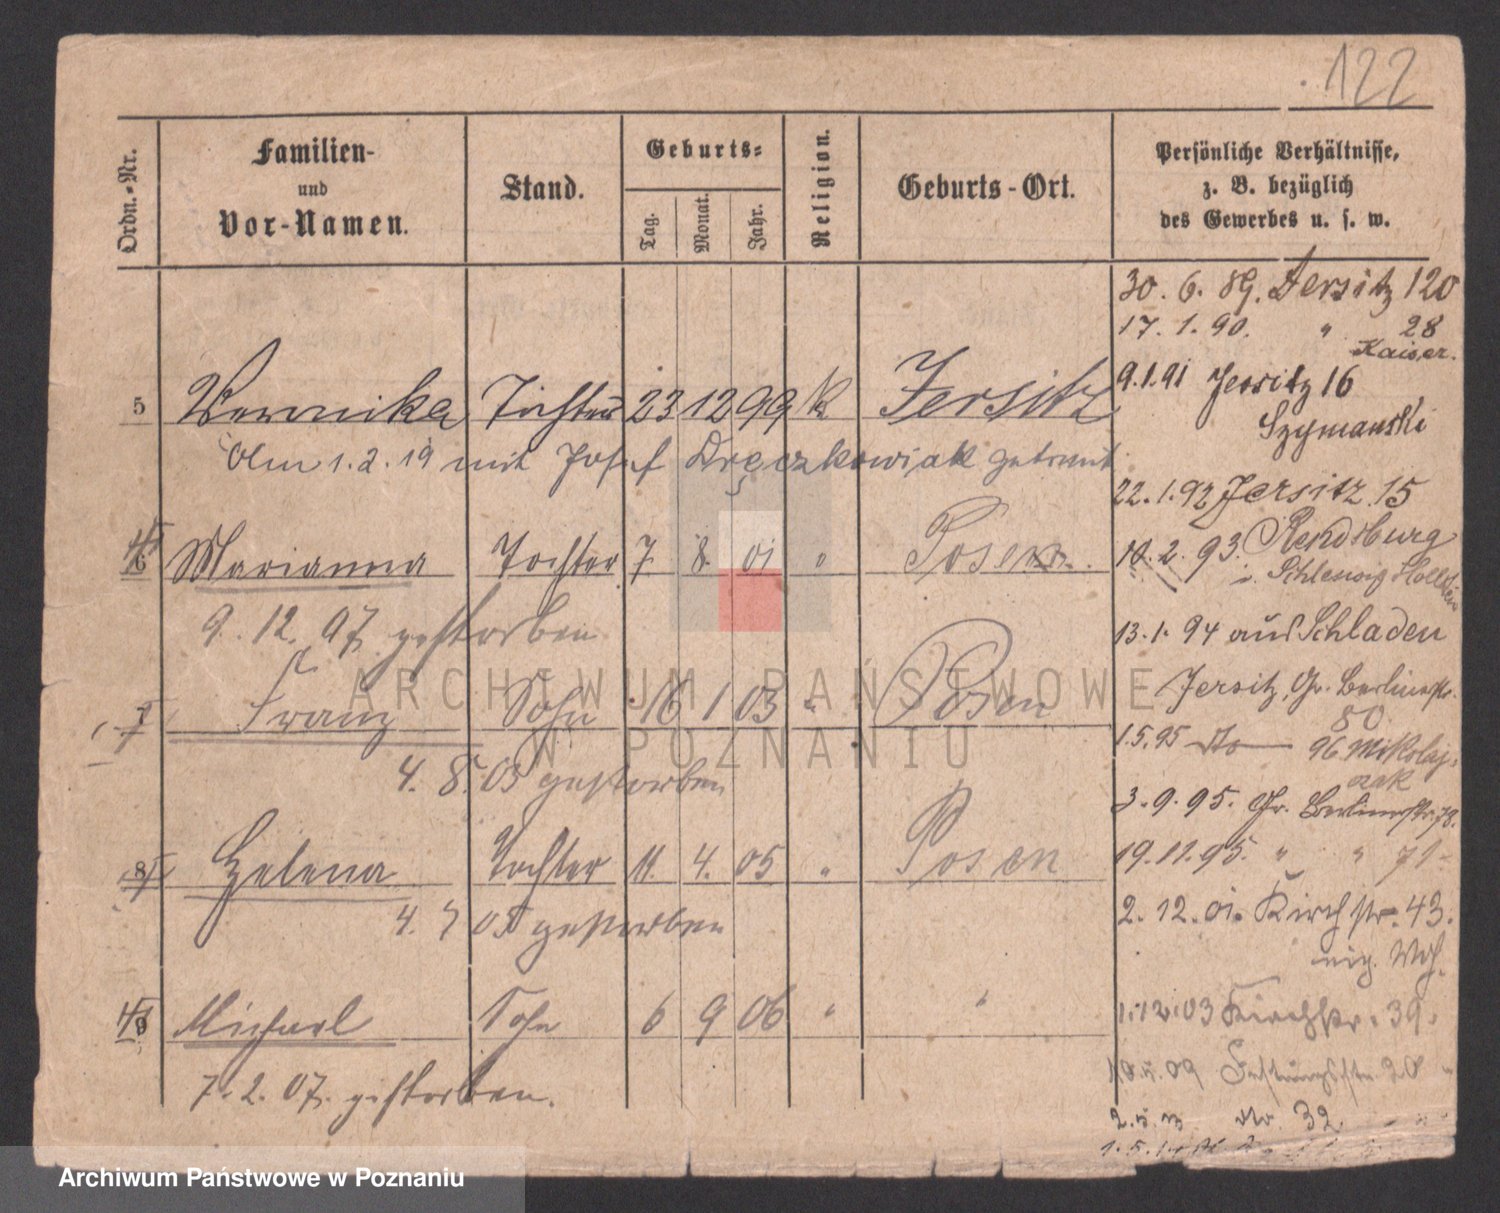 122
Ordn.-Nr.
Familien-
und
Vor-Namen.
Stand.
Geburts-
Tag.
Monat.
Jahr.
Religion.
Geburts-Ort.
Persönliche Verhältnisse,
z. B. bezüglich
des Gewerbes u. s. w.
5 Veronika Tochter 23 12 99 k Jersitz
Am 1.2.19 mit Josef Dręczkowiak getraut
6 Marianna Tochter 7 8 01 " Posen
9. 12. 07 gestorben
7 Franz Sohn 16 1 03 " Posen
4. 8. 03 gestorben
8 Helena Tochter 11. 4. 05 " Posen
4. 7 05 gestorben
9 Michael Sohn 6 9 06 " "
7. 2. 07. gestorben.
30. 6. 89. Jersitz 120
17. 1. 90. " 28
Kaiser.
9.1.91 Jersitz 16
Szymanski
22.1.92 Jersitz 15
10. 2. 93. Rendsburg
i. Schleswig Holstein
13.1.94 aus Schladen
Jersitz, Gr. Berlinerstr.
80
1.5.95 dto 96 Mikolaj-
czak
3.9.95. Gr. Berlinerstr. 78.
19.11.95. " " 71
2.12.01. Kirchstr. 43.
eig. Whg.
1.12.03 Kirchstr. 39.
09 Festungsstr. 20
32
ARCHIWUM PAŃSTWOWE
W POZNANIU
Archiwum Państwowe w Poznaniu